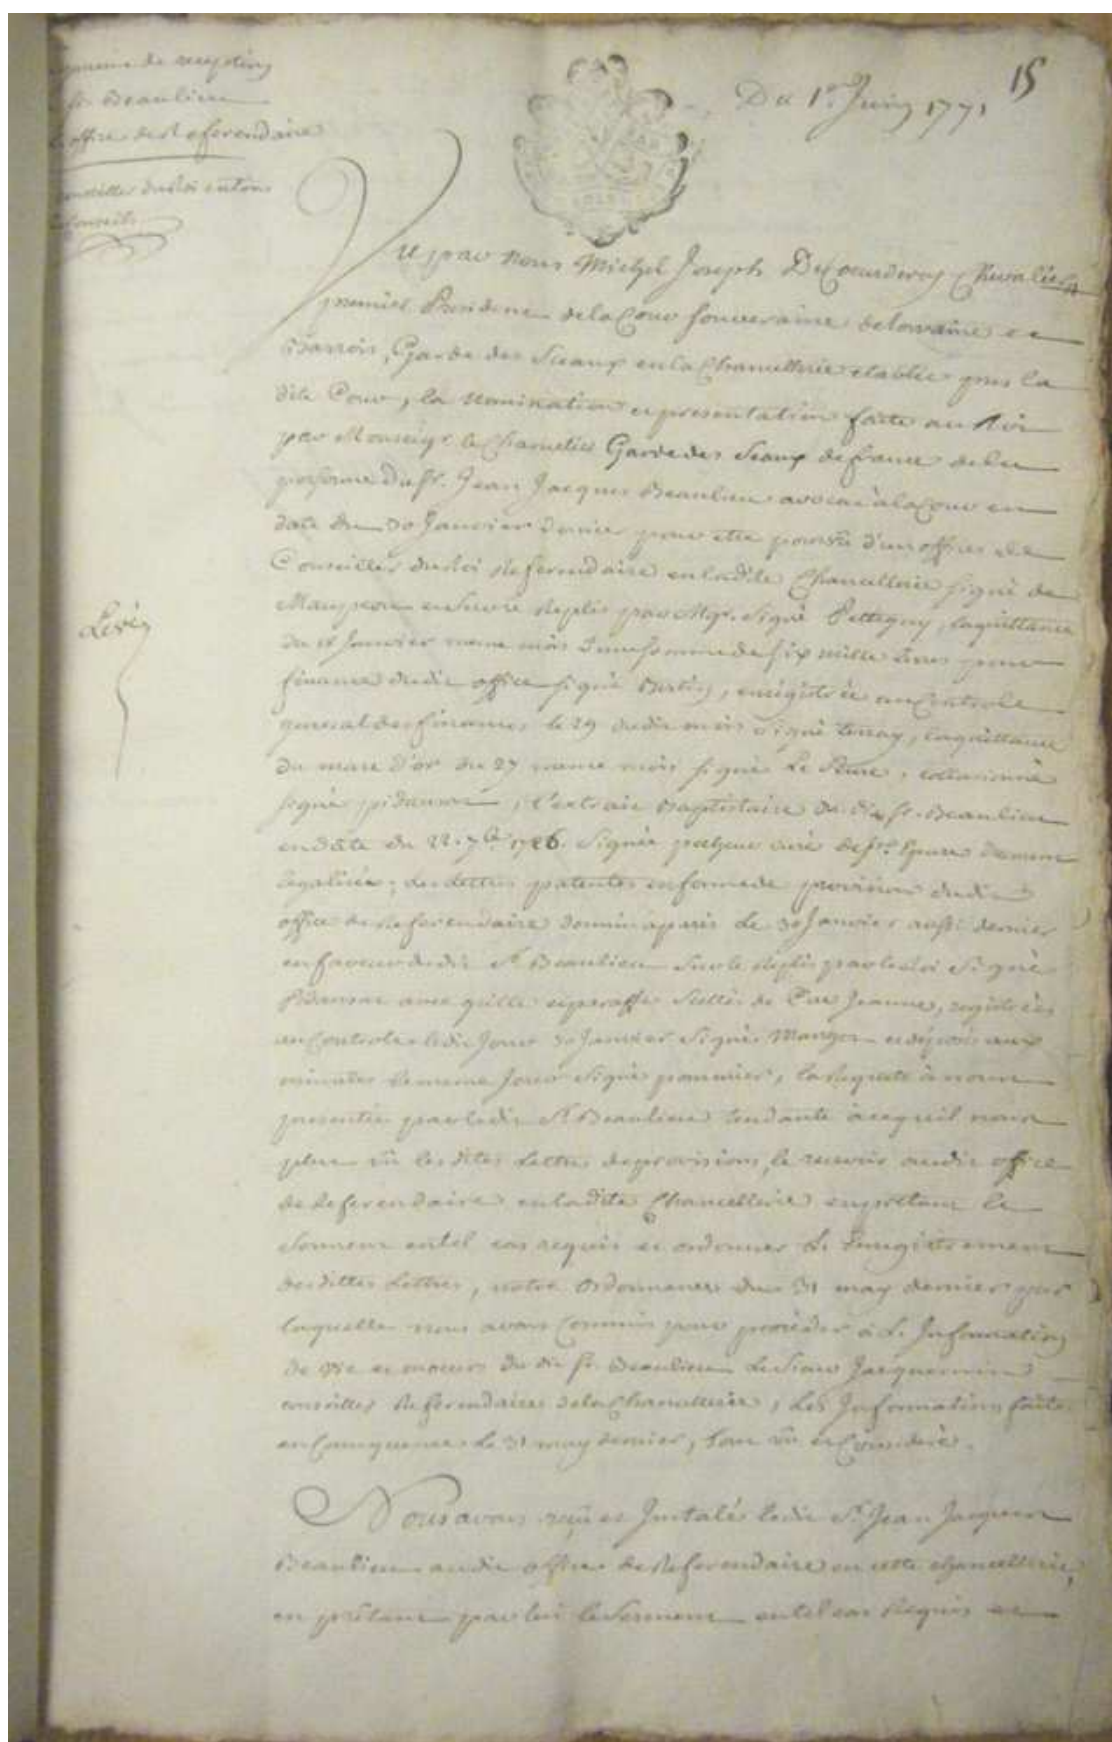 de reception
Sr. Beaulieu
office de Referendaire
Conseiller du Roi en tous
Conseils
15
Du 1er. Juin 1771
Vu par Nous Michel Joseph De Coeurderoy Chevalier
premier President de la Cour souveraine de Lorraine et
Barrois, Garde des Sceaux en la Chancellerie etablie pres la
dite Cour, la nomination et presentation faite au Roi
par Monseigr. le Chancelier Garde des Sceaux de france de la
personne du Sr. Jean Jacques Beaulieu avocat à la Cour en
date du 30 Janvier dernier pour etre pourvû d'un office de
Conseiller du Roi Referendaire en ladite Chancellerie signé de
Maupeou ensuivie Replis par Mgr. signé Pettigny, la quittance
du 18 Janvier meme mois d'une somme de six mille livres pour
finance dudit office signé Bertin, enrégistrée au Controle
general des finances le 29 dudit mois signé Terray, la quittance
du marc d'or du 27 meme mois signé Le Seure, collationné
signé, l'extrait Baptistaire du dit Sr. Beaulieu
en date du 22. 7bre 1726. signée curé de St. Epvre dument
legalisée; les lettres patentes en forme de provision dudit
office de Referendaire donné à paris le 30 Janvier aussi dernier
en faveur dudit Sr. Beaulieu sur le Replis par le Roi signé
avec grille et paraffe scellé de Cire Jaune, registrées
au Controle ledit Jour 30 Janvier signé et déposé aux
minutes le meme Jour signé pommier, la Requete à nous
presentée par ledit Sr. Beaulieu tendante à ce qu'il nous
plut vû lesdites Lettres de provisions, le recevoir audit office
de Referendaire en ladite Chancellerie en prêtant le
serment en tel cas requis et ordonner l'Enregistrement
desdittes Lettres, notre Ordonnance du 31 may dernier par
laquelle nous avons Commis pour proceder à l'Information
de vie et moeurs du dit Sr. Beaulieu le Sieur Jacquemin
conseiller Referendaire de la Chancellerie, les Information faite
en Consequence le 31 may dernier, tout vû et Consideré.
Nous avons reçu et Instalés ledit Sr. Jean Jacques
Beaulieu audit office de Referendaire en cette chancellerie,
en prêtant par lui le Serment en tel cas Requis et